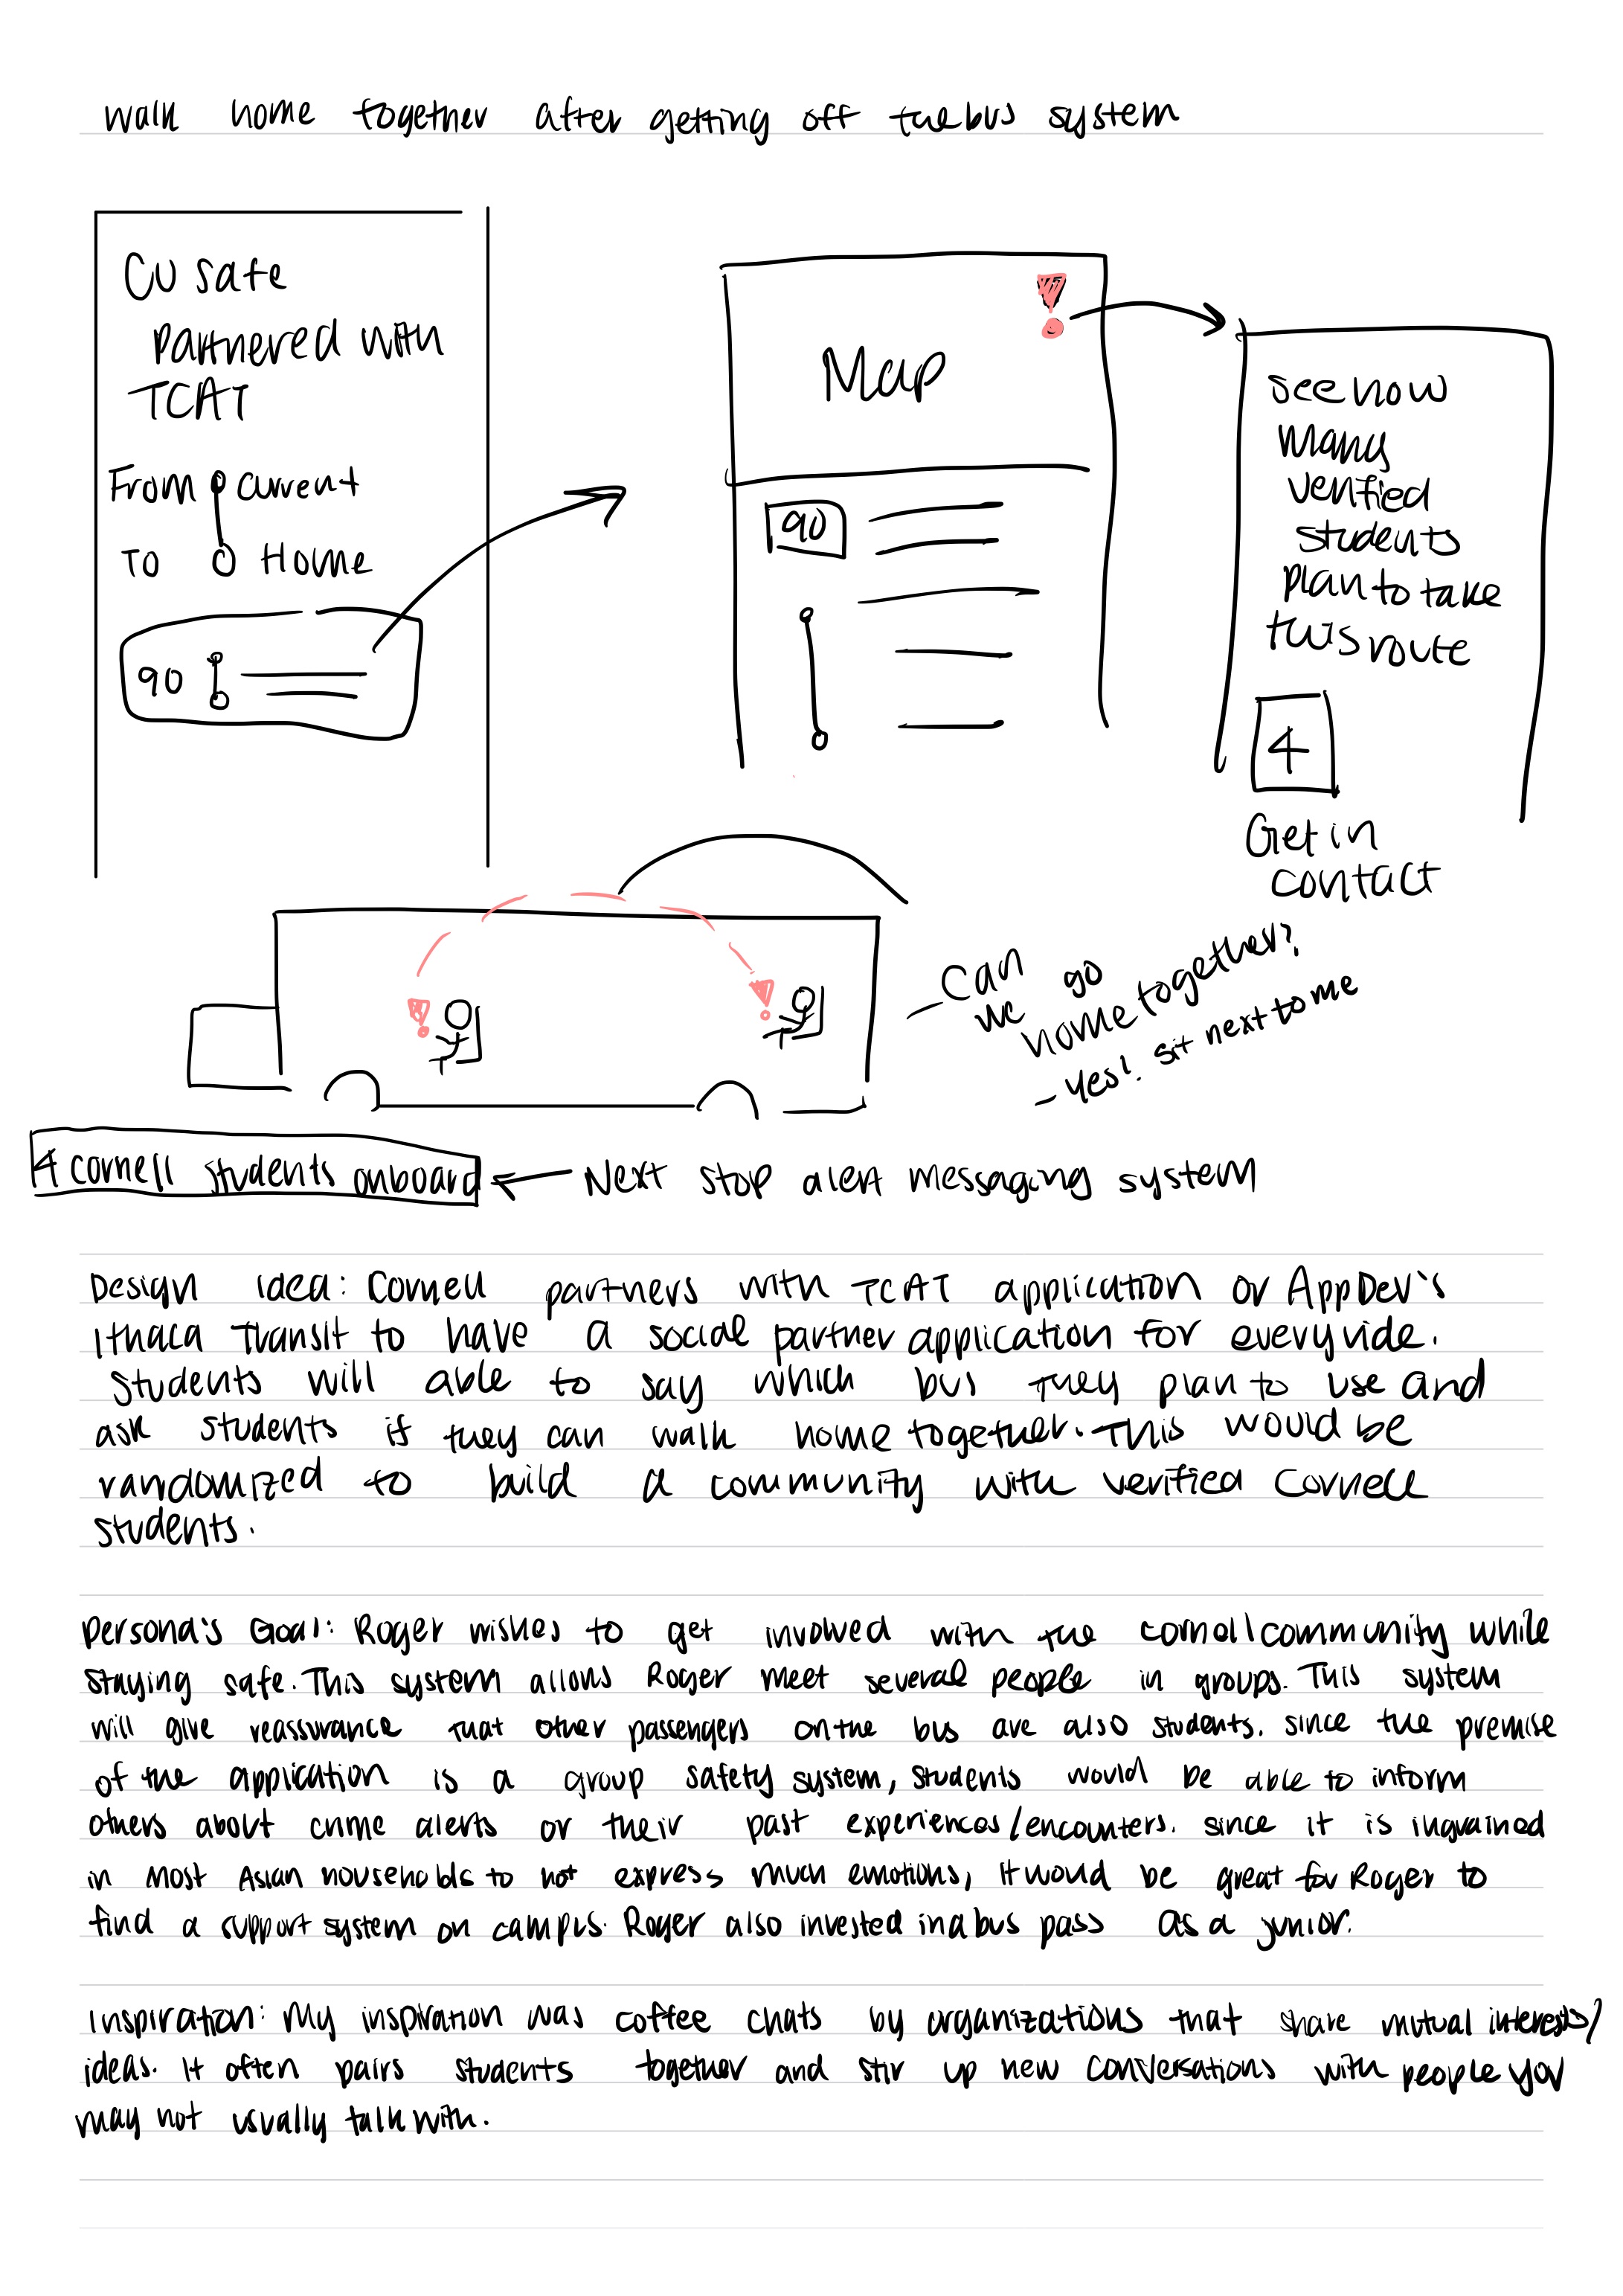 walk home together after getting off the bus system
CU safe
partnered with
TCAT
From current
TO Home
90
Map
90
see how
many
verified
students
plan to take
this route
4
Get in
contact
- Can
we go
home together?
- yes! sit next to me
4 cornell students onboard
Next stop alert messaging system
Design idea: Cornell partners with TCAT application or AppDev's
Ithaca Transit to have a social partner application for every ride.
Students will able to say which bus they plan to use and
ask students if they can walk home together. This would be
randomized to build a community with verified Cornell
students.
Persona's Goal: Roger wishes to get involved with the cornell community while
staying safe. This system allows Roger meet several people in groups. This system
will give reassurance that other passengers on the bus are also students. since the premise
of the application is a group safety system, students would be able to inform
others about crime alerts or their past experiences/encounters. since it is ingrained
in most Asian households to not express much emotions, it would be great for Roger to
find a support system on campus. Roger also invested in a bus pass as a junior.
Inspiration: My inspiration was coffee chats by organizations that share mutual interests/
ideas. It often pairs students together and stir up new conversations with people you
may not usually talk with.